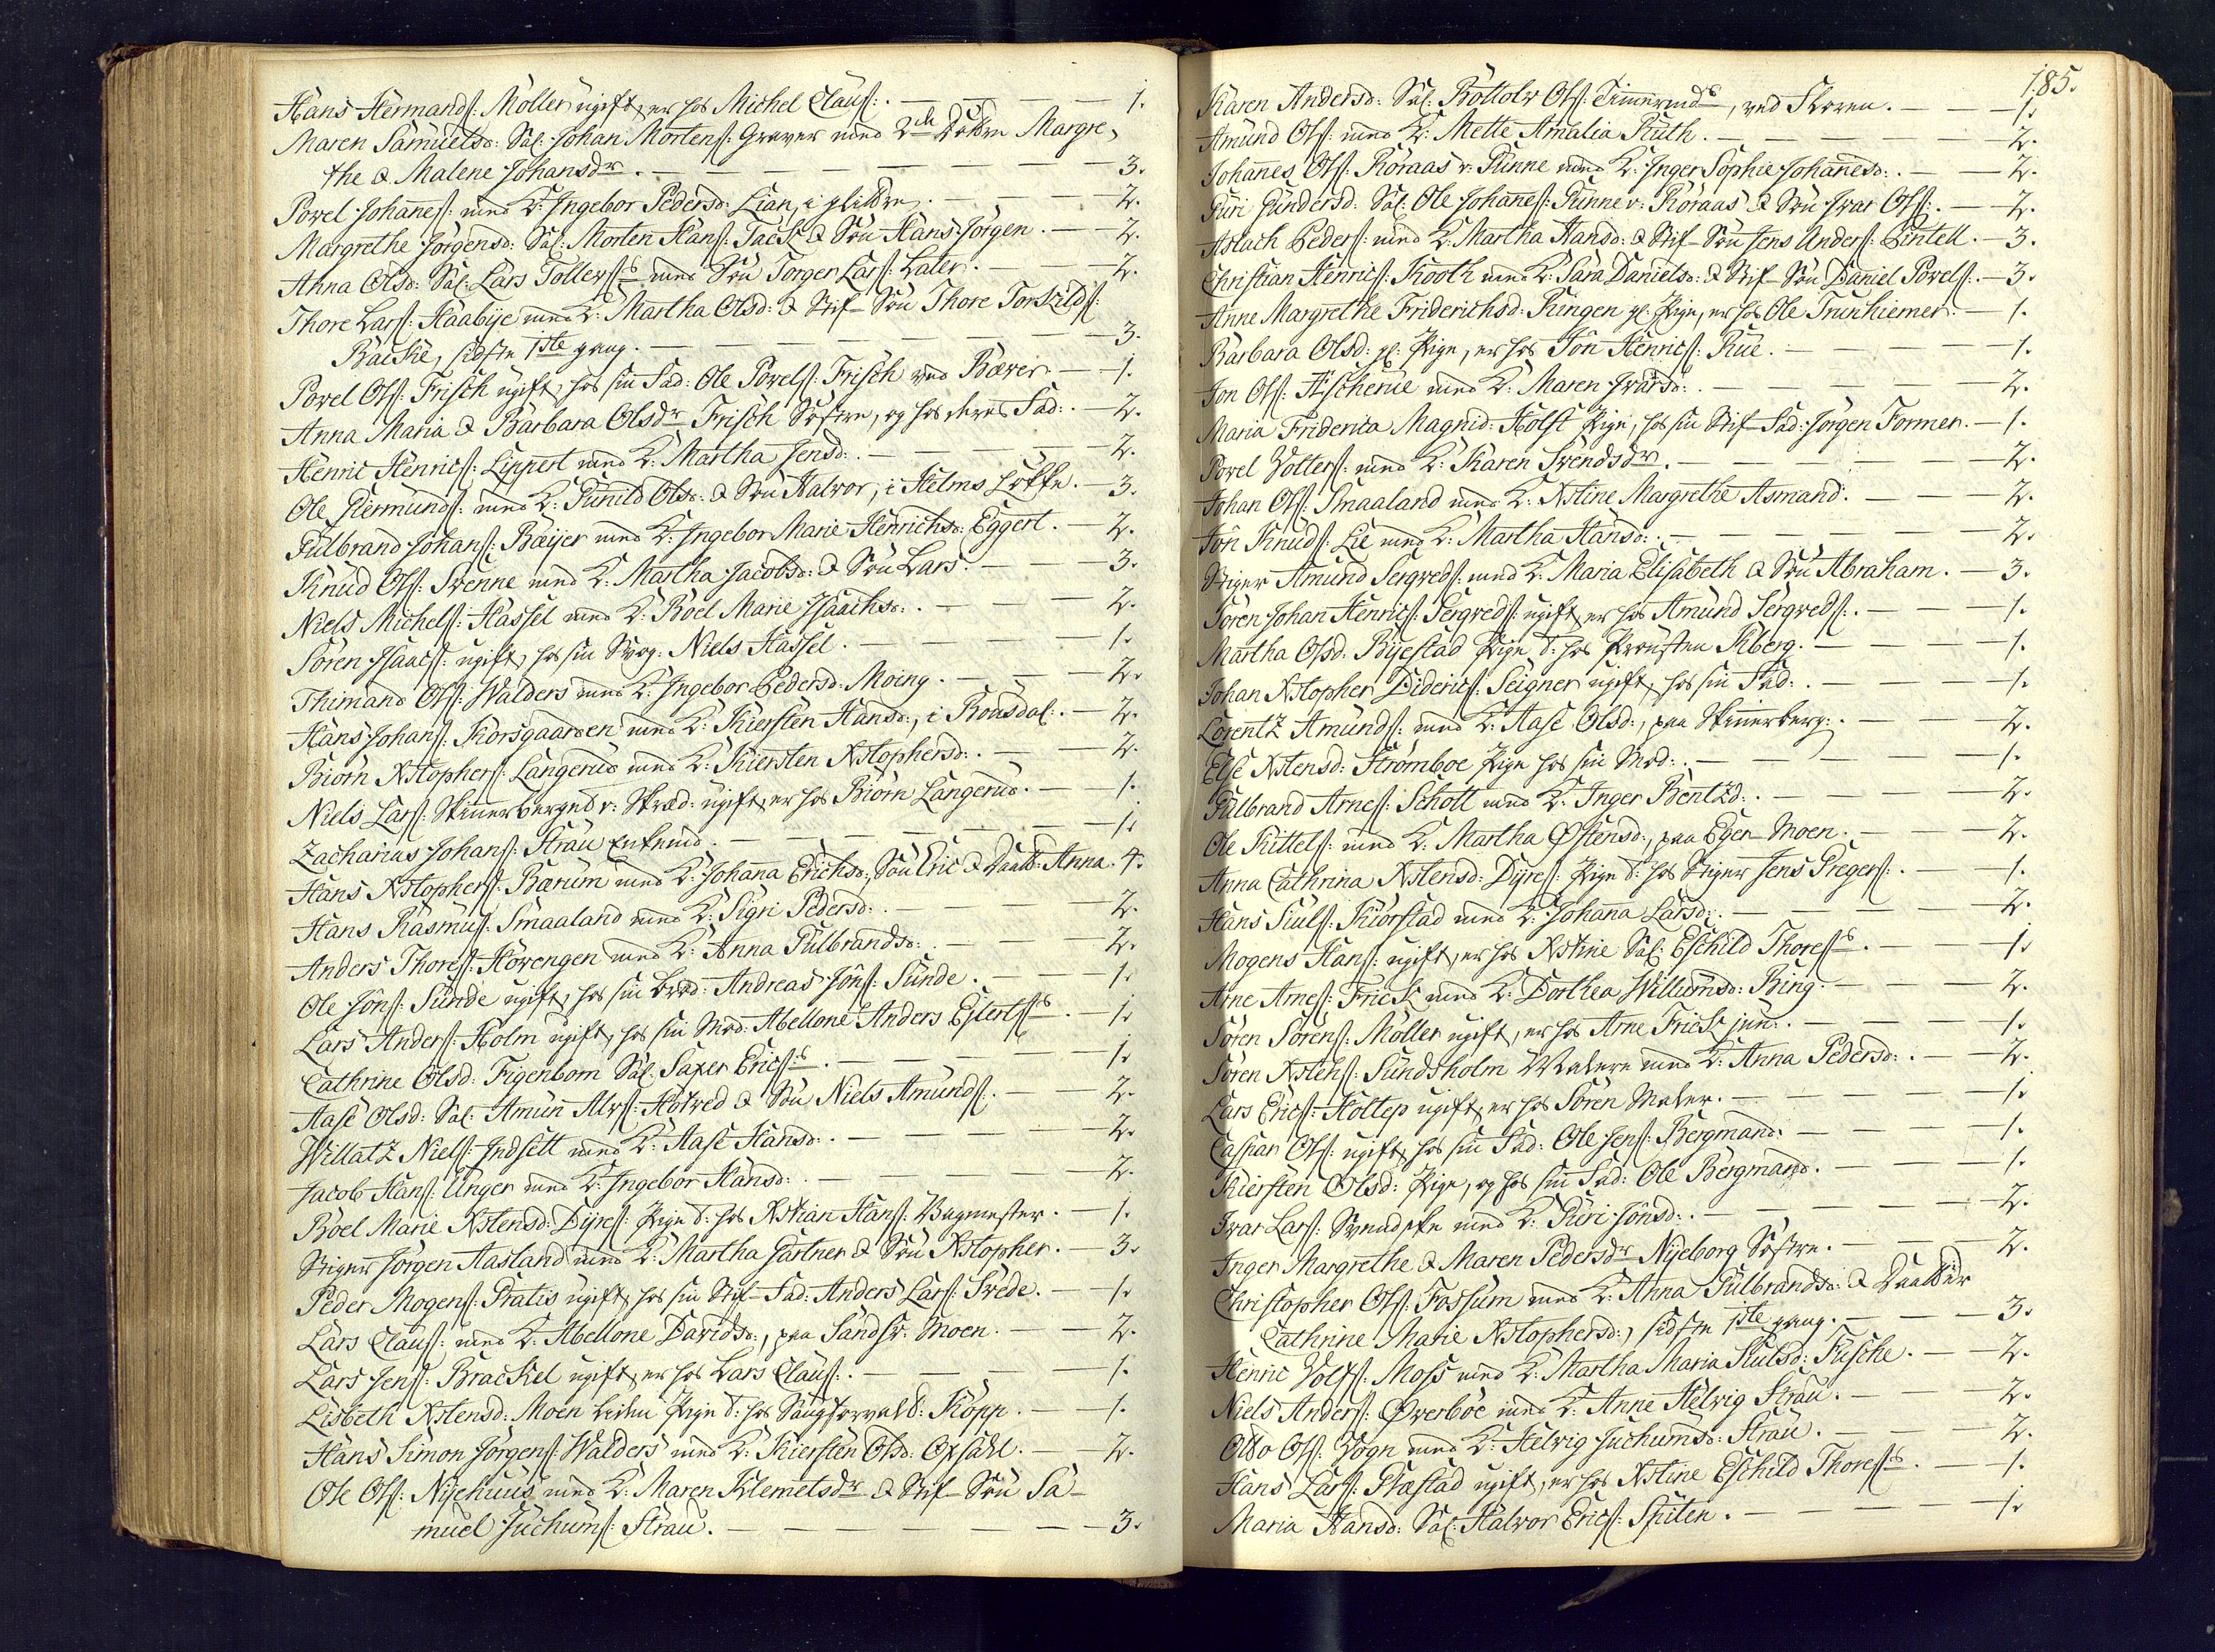 Hans Hermands: Möller ugift, er hos Michel Claus:. — — — 1.
Maren Samuelsd: Sal: Johan Mortens: Graver med 2de Döttre Margre,
the & Malene Johansdr. — — — 3.
Povel Johanes: med K: Ingebor Pedersd: Lian, i — — 2.
Margrethe Jörgensd: Sal: Morten Hans: Tack & Sön Hans Jörgen. — 2.
Anna Olsd: Sal: Lars Tollefss med Sön Torger Lars: Later. — 2.
Thore Lars: Haabije med K: Martha Olsd: & Stif-Sön Thore Torkilds:
Backe, sidste 1ste gang. — — — 3.
Povel Ols: Frisch ugift, hos sin Fad: Ole Povels: Frisch ved Bæver. — 1.
Anna Maria & Barbara Olsdr Frisch Söstre, og hos deres Fad:. — 2.
Henric Henrics: Lippert med K: Martha Jensd:. — — 2.
Ole Giermunds: med K: Gunild Olsd: & Sön Halvor, i Helms Löffe. — 3.
Gulbrand Johans: Bæijer med K: Ingebor Marie Henrichsd: Eggert. — 2.
Knud Ols: Svenne med K: Martha Jacobsd: & Sön Lars. — 3.
Niels Michels: Hassel med K: Boel Marie Isaachsd:. — 2.
Sören Isaacs: ugift, hos sin Svog: Niels Hassel. — — 1.
Thimand Ols: Walders med K: Ingebor Pedersd: Moing. — — 2.
Hans Johans: Korsgaarden med K: Kiersten Hansd:, i Ronsdal:. — 2.
Biörn Xstophers: Langerud med K: Kiersten Xstophersd:. — 2.
Niels Lars: Skinnerberget v: Skræd: ugift, er hos Biörn Langerud. — 1.
Zacharias Johans: Strau Enkemd. — — — 1.
Hans Xstophers: Bærum med K: Johana Erichsd:, Sön Eric & Daatt: Anna. 4.
Hans Rasmus: Smaaland med K: Sigri Pedersd:. — — 2.
Anders Thores: Hovengen med K: Anna Gulbrandsd:. — — 2.
Ole Jöns: Sunde ugift, hos sin Brod: Andreas Jöns: Sunde. — 1.
Lars Anders: Holm ugift, hos sin Mod: Abellone Anders Ejlertss. — 1.
Cathrine Olsd: Figenbom Sal: Saxer Ericss. — — 1.
Aase Olsd: Sal: Amun Alvs: Hotved & Sön Niels Amunds:. — 2.
Willatz Niels: Indsett med K: Aase Hansd:. — — 2.
Jacob Hans: Unger med K: Ingebor Hansd:. — — 2.
Boel Marie Xstensd: Dijres: Pige d: hos Xstian Hans: Bagmester. — 1.
Stiger Jörgen Aasland med K: Martha Gartner & Sön Xstopher. — 3.
Peder Mogens: Pratis ugift, hos sin Stif-Fad: Anders Lars: Svede. — 1.
Lars Claus: med K: Abellone Davidsd:, paa Sandsv: Moen. — 2.
Lars Jens: Brackel ugift, er hos Lars Claus:. — — 1.
Lisbeth Xstensd: Moen Pige d: hos Köpp. — 1.
Hans Simon Jörgens: Walders med K: Kiersten Olsd: Opsahl. — 2.
Ole Ols: Nijehuus med K: Maren Klemetsdr & Stif-Sön Sa-
muel Juchums: Strau. — — — 3.
185.
Karen Andersd: Sal: Bottolv Ols: Timmermds, ved Skoren. — 1.
Amund Ols: med K: Mette Amalia Ruth. — — 2.
Johanes Ols: Röraas v: Runne med K: Inger Sophie Johanesd:. — 2.
Guri Gundersd: Sal: Ole Johanes: Runne v: Röraas & Sön Ivar Ols:. — 2.
Aslach Peders: med K: Martha Hansd: & Stif-Sön Jens Anders: Pintell. — 3.
Christian Henrics: Kooth med K: Sara Danielsd: & Stif-Sön Daniel Povels:. — 3.
Anne Margrethe Friderichsd: Ringen gl: Pige, er hos Ole Trunhiemer. — 1.
Barbara Olsd: gl: Pige, er hos Jon Henrics: Rue. — — 1.
Jon Ols: Ascherue med K: Maren Ivarsd:. — — 2.
Maria Friderica Magnid: Holst Pige, hos sin Stif-Fad: Jörgen Former. — 1.
Povel Volters: med K: Karen Svendsdr. — — 2.
Johan Ols: Smaaland med K: Xstine Margrethe Asmand. — — 2.
Jon Knuds: Lie med K: Martha Hansd:. — — 2.
Stiger Amund Sergveds: med K: Maria Elisabeth & Sön Abraham. — 3.
Sören Johan Henrics: Sergveds: ugift, er hos Amund Sergveds:. — 1.
Martha Olsd: Bijestad Pige d: hos Prousten — 1.
Johan Xstopher Diderics: Seigner ugift, hos sin Fad:. — — 1.
Lorentz Amunds: med K: Aase Olsd:, paa Skinnerberg:. — 2.
Else Xstensd: Strömboe Pige hos sin Mod:. — — 1.
Gulbrand Arnes: Schott med K: Inger Bentzd:. — — 2.
Ole Kittels: med K: Martha Östensd:, paa Eger-Moen. — 2.
Anna Cathrina Xstensd: Dijres: Pige d: hos Stiger Jens Gregers:. — 1.
Hans Skuls: Kiörstad med K: Johana Larsd:. — — 2.
Mogens Hans: ugift, er hos Xstine Sal: Eschild Thoress. — 1.
Arne Arnes: Frick med K: Dorthea Willumsd: Bing. — — 2.
Sören Sörens: Möller ugift, er hos Arne Frick jun:. — — 1.
Sören Xstens: Sundsholm Malere med K: Anna Pedersd:. — 2.
Lars Erics: Holtep ugift, er hos Sören Maler. — — 1.
Caspar Ols: ugift, hos sin Fad: Ole Jens: Bergmand. — — 1.
Kiersten Olsd: Pige, og hos sin Fad: Ole Bergmand. — — 1.
Ivar Lars: med K: Guri Jönsd:. — — 2.
Inger Margrethe & Maren Pedersdr Nijeborg Söstre. — — 2.
Christopher Ols: Fossum med K: Anna Gulbrandsd: & Daatter
Cathrine Marie Xstophersd:, sidste 1ste gang. — — 3.
Henric Volfs: Moss med K: Martha Maria Skulsd: Fusche. — 2.
Niels Anders: Överböe med K: Anne Helvig Strau. — 2.
Otto Ols: Vogn med K: Helvig Juchumsd: Strau. — 2.
Hans Lars: Præstad ugift, er hos Xstine Eschild Thoress. — 1.
Maria Hansd: Sal: Halvor Erics: Spiten. — — 1.